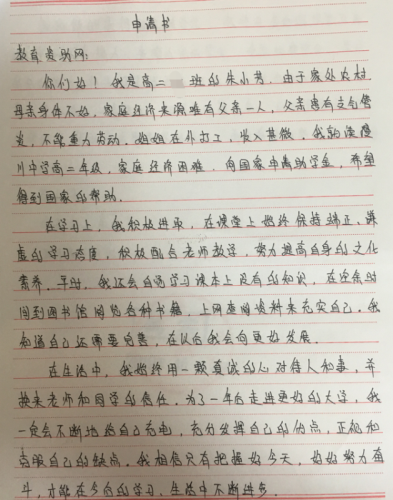 申请书
教育资助网:
你们好!我是高二 班的朱小芳,由于家处农村
母亲身体不好,家庭经济来源唯有父亲一人,父亲患有支气管
炎,不能重力劳动,姐姐在外打工,收入甚微。我就读
川中学高二年级,家庭经济困难,向国家申请助学金,希望
得到国家的帮助。
在学习上,我积极进取,在课堂上始终保持端正、谦
虚的学习态度,积极配合老师教学,努力提高自身的文化
素养。平时,我还会自觉学习课本上没有的知识,在课余时
间到图书馆阅览各种书籍,上网查阅资料来充实自己。我
知道自己还需要完善,在以后我会向更好发展。
在生活中,我始终用一颗真诚的心对待人和事,并
换来老师和同学的信任。为了一年后走进更好的大学,我
一定会不断地给自己充电,充分发挥自己的优点,正视和
克服自己的缺点。我相信只有把握好今天,好好努力奋
斗,才能在今后的学习、生活中不断进步。